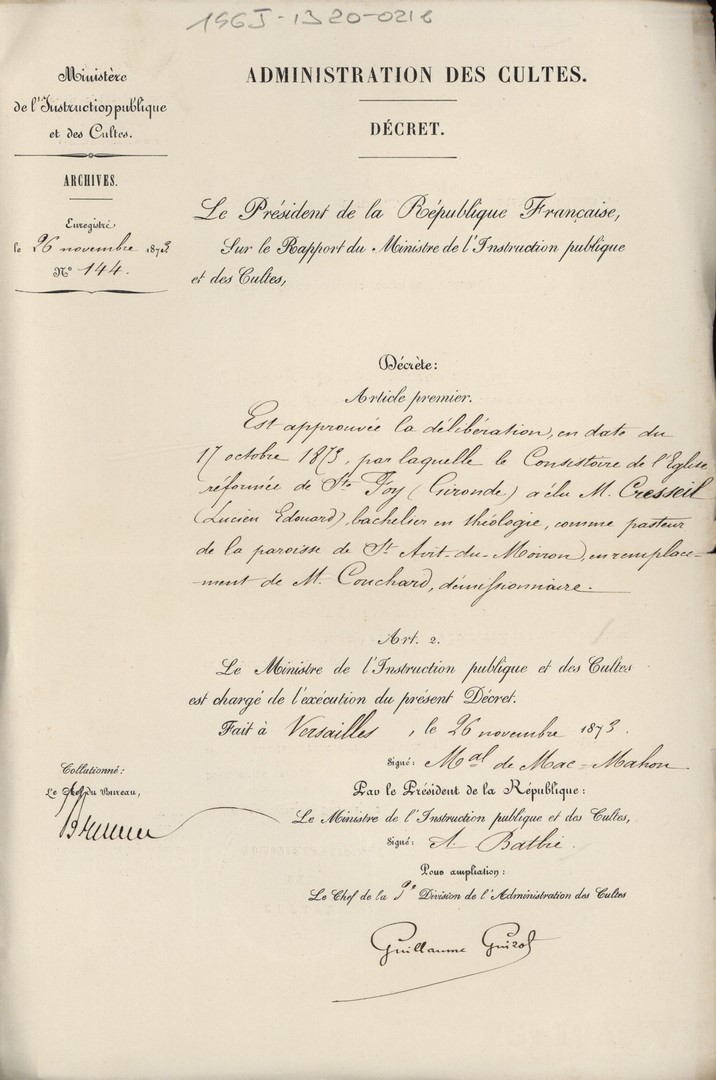 196J-1320-0218
Ministère
de l'Instruction publique
et des Cultes.
ARCHIVES.
Enregistré
le 26 novembre 1873
N° 144.
ADMINISTRATION DES CULTES.
DÉCRET.
Le Président de la République Française,
Sur le Rapport du Ministre de l'Instruction publique
et des Cultes,
Décrète:
Article premier.
Est approuvée la délibération, en date du
17 octobre 1873, par laquelle le Consistoire de l'Eglise
réformée de Ste Foy (Gironde) a élu M. Cresseil
(Lucien Edouard), bachelier en théologie, comme pasteur
de la paroisse de St Avit-du-Moiron, en remplace-
ment de M. Couchard, démissionnaire.
Art. 2.
Le Ministre de l'Instruction publique et des Cultes
est chargé de l'exécution du présent Décret.
Fait à Versailles, le 26 novembre 1873.
Signé: Mal de Mac-Mahon
Par le Président de la République:
Le Ministre de l'Instruction publique et des Cultes,
Signé: A. Batbie.
Pour ampliation:
Le Chef de la 2e Division de l'Administration des Cultes
Guillaume Guizot
Collationné:
Le Chef du Bureau,